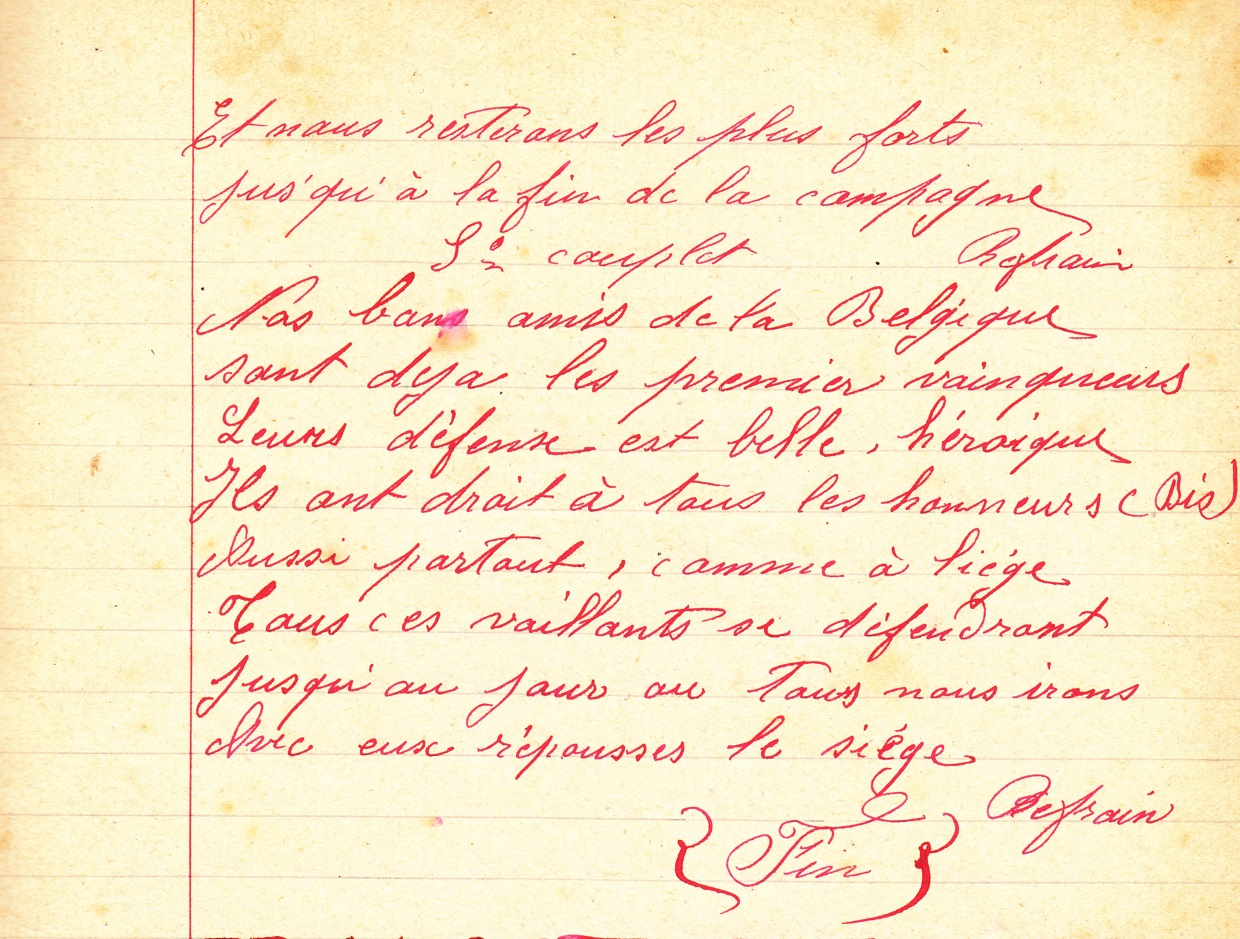 Et nous resterons les plus forts
jus'qu'à la fin de la campagne
couplet Refrain
Nos bons amis de la Belgique
sont deja les premier vainqueurs
Leurs défense est belle, héroique
Ils ont droit à tous les honneurs (Bis)
Aussi partout, comme à liége
Tous ces vaillants se défendront
jusqu'au jour ou tous nous irons
Avec eux répousses le siége
Refrain
{ Fin }